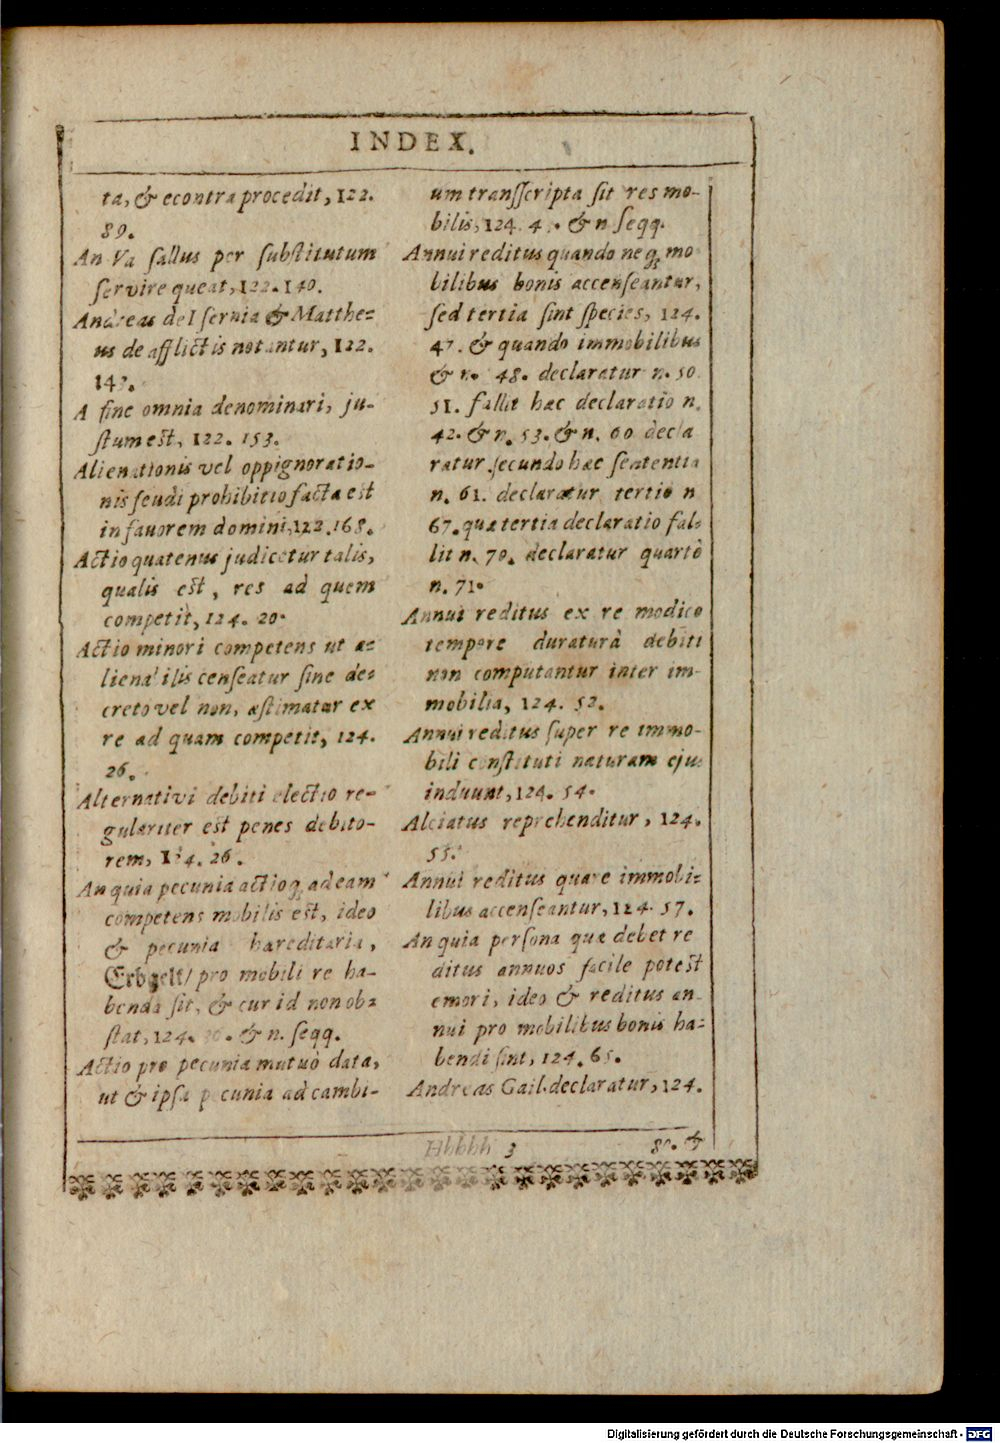 INDEX.
ta, & econtra procedit, 122.
89.
An Vasallus per substitutum
servire queat, 122. 140.
Andreas de Isernia & Matthe-
us de afflictis notantur, 122.
143.
A fine omnia denominari, ju-
stum est, 122. 153.
Alienationis vel oppignoratio-
nis feudi prohibitio facta est
in favorem domini, 122. 168.
Actio quatenus judicetur talis,
qualis est, res ad quem
competit, 124. 20.
Actio minori competens ut a-
lienabilis censeatur sine de-
creto vel non, æstimatur ex
re ad quam competit, 124.
26.
Alternativi debiti electio re-
gulariter est penes debito-
rem, 124. 26.
An quia pecunia actioq; ad eam
competens mobilis est, ideo
& pecunia hæreditaria,
Erbgelt/ pro mobili re ha-
benda sit, & cur id non ob-
stat, 124. & n. seqq.
Actio pro pecunia mutuò data,
ut & ipsa pecunia ad cambi-
um transscripta sit res mo-
bilis, 124. & n seqq.
Annui reditus quando neq; mo
bilibus bonis accenseantur,
sed tertia sint species, 124.
47. & quando immobilibus
& n. 48. declaratur n. 50
51. fallit hæc declaratio n.
42. & n. 53. & n. 60 decla
ratur secundo hæc sententia
n. 61. declaratur tertio n
67. quæ tertia declaratio fal-
lit n. 70. declaratur quartò
n. 71.
Annui reditus ex re modico
tempore duraturâ debiti
non computantur inter im-
mobilia, 124. 52.
Annui reditus super re immo-
bili constituti naturam ejus
induunt, 124. 54.
Alciatus reprehenditur, 124.
55.
Annui reditus quare immobi-
libus accenseantur, 124. 57.
An quia persona quæ debet re
ditus annuos facile potest
emori, ideo & reditus an-
nui pro mobilibus bonis ha-
bendi sint, 124. 65.
Andreas Gail. declaratur, 124.
Hhhhh 3 80. &
Digitalisierung gefördert durch die Deutsche Forschungsgemeinschaft - DFG